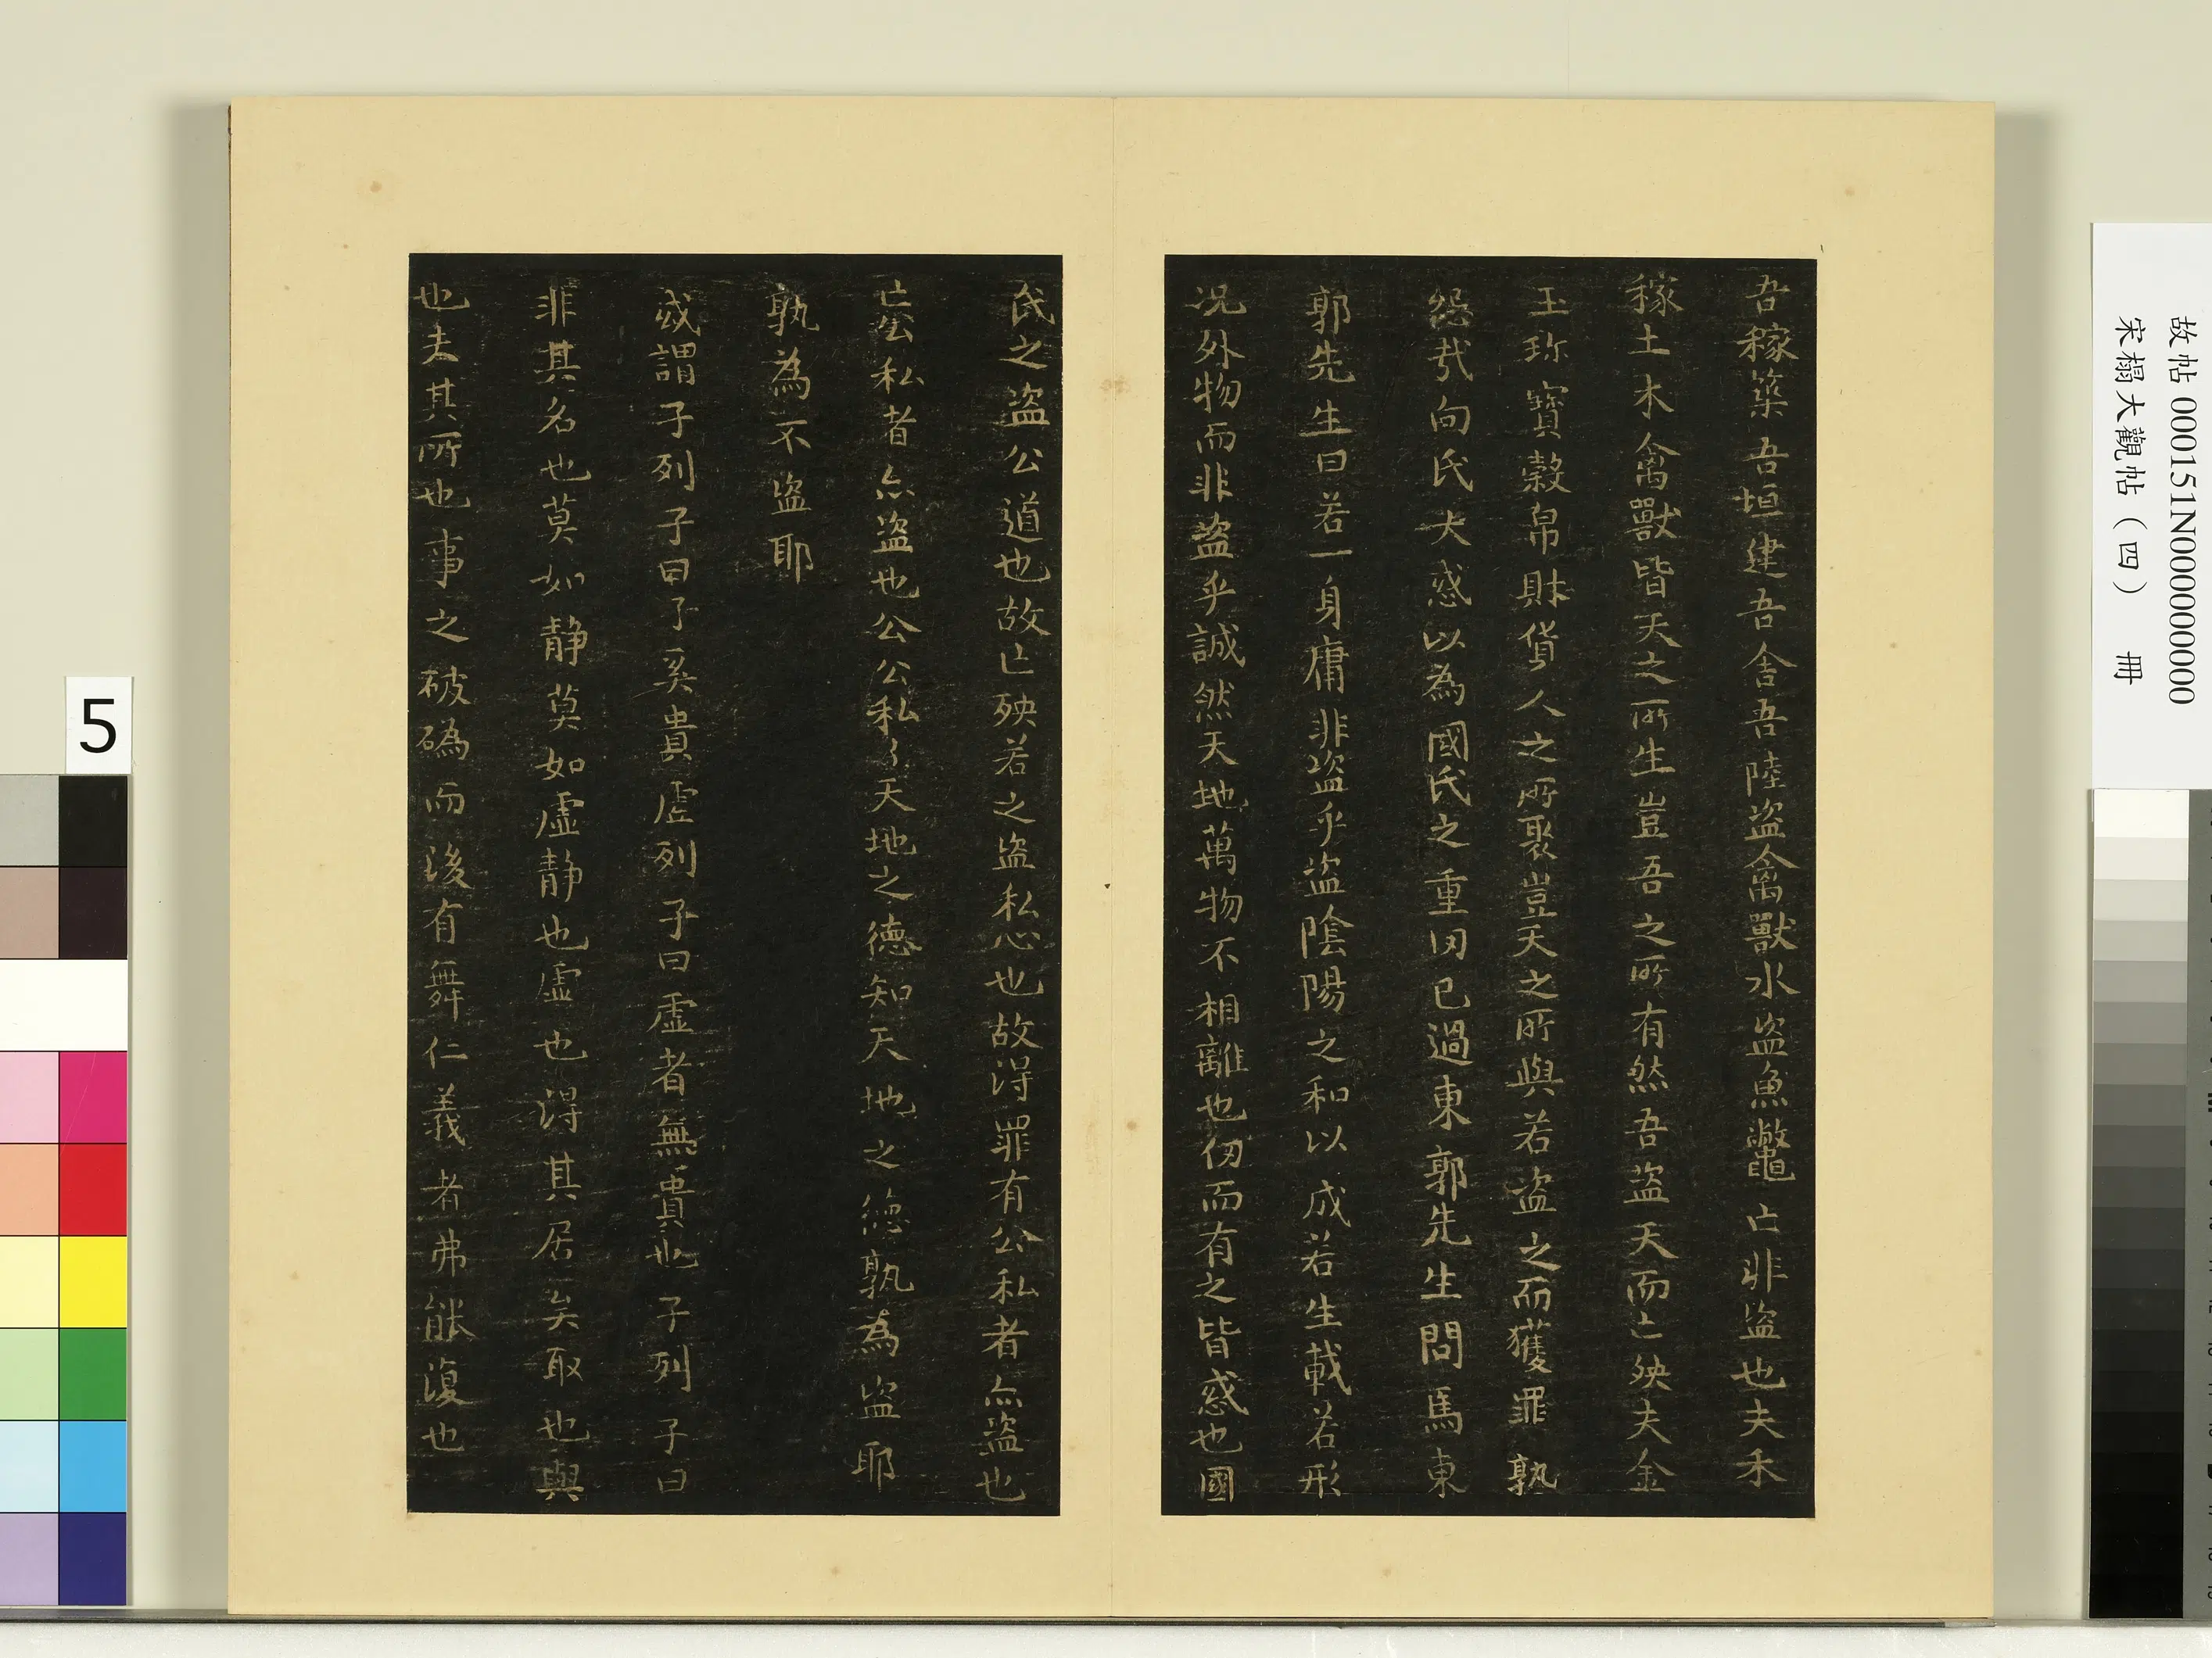 吾稼築吾垣建吾舍吾陸盜禽獸水盜魚鼈亡非盜也夫禾
稼土木禽獸皆天之所生豈吾之所有然吾盜天而亡殃夫金
玉珎寶穀帛財貨人之所聚豈天之所與若盜之而獲罪孰
怨哉向氏大惑以為國氏之重罔已過東郭先生問焉東
郭先生曰若一身庸非盜乎盜陰陽之和以成若生載若形
况外物而非盜乎誠然天地萬物不相離也仞而有之皆惑也國
氏之盜公道也故亡殃若之盜私心也故得罪有公私者亦盜也
亡公私者亦盜也公公私私天地之德知天地之德孰為盜耶
孰為不盜耶
或謂子列子曰子奚貴虛列子曰虛者無貴也子列子曰
非其名也莫如静莫如虛静也虛也得其居矣取也與
也失其所也事之破䃣而後有舞仁義者弗能復也
故帖 000151N000000000
宋榻大觀帖（四） 冊
5